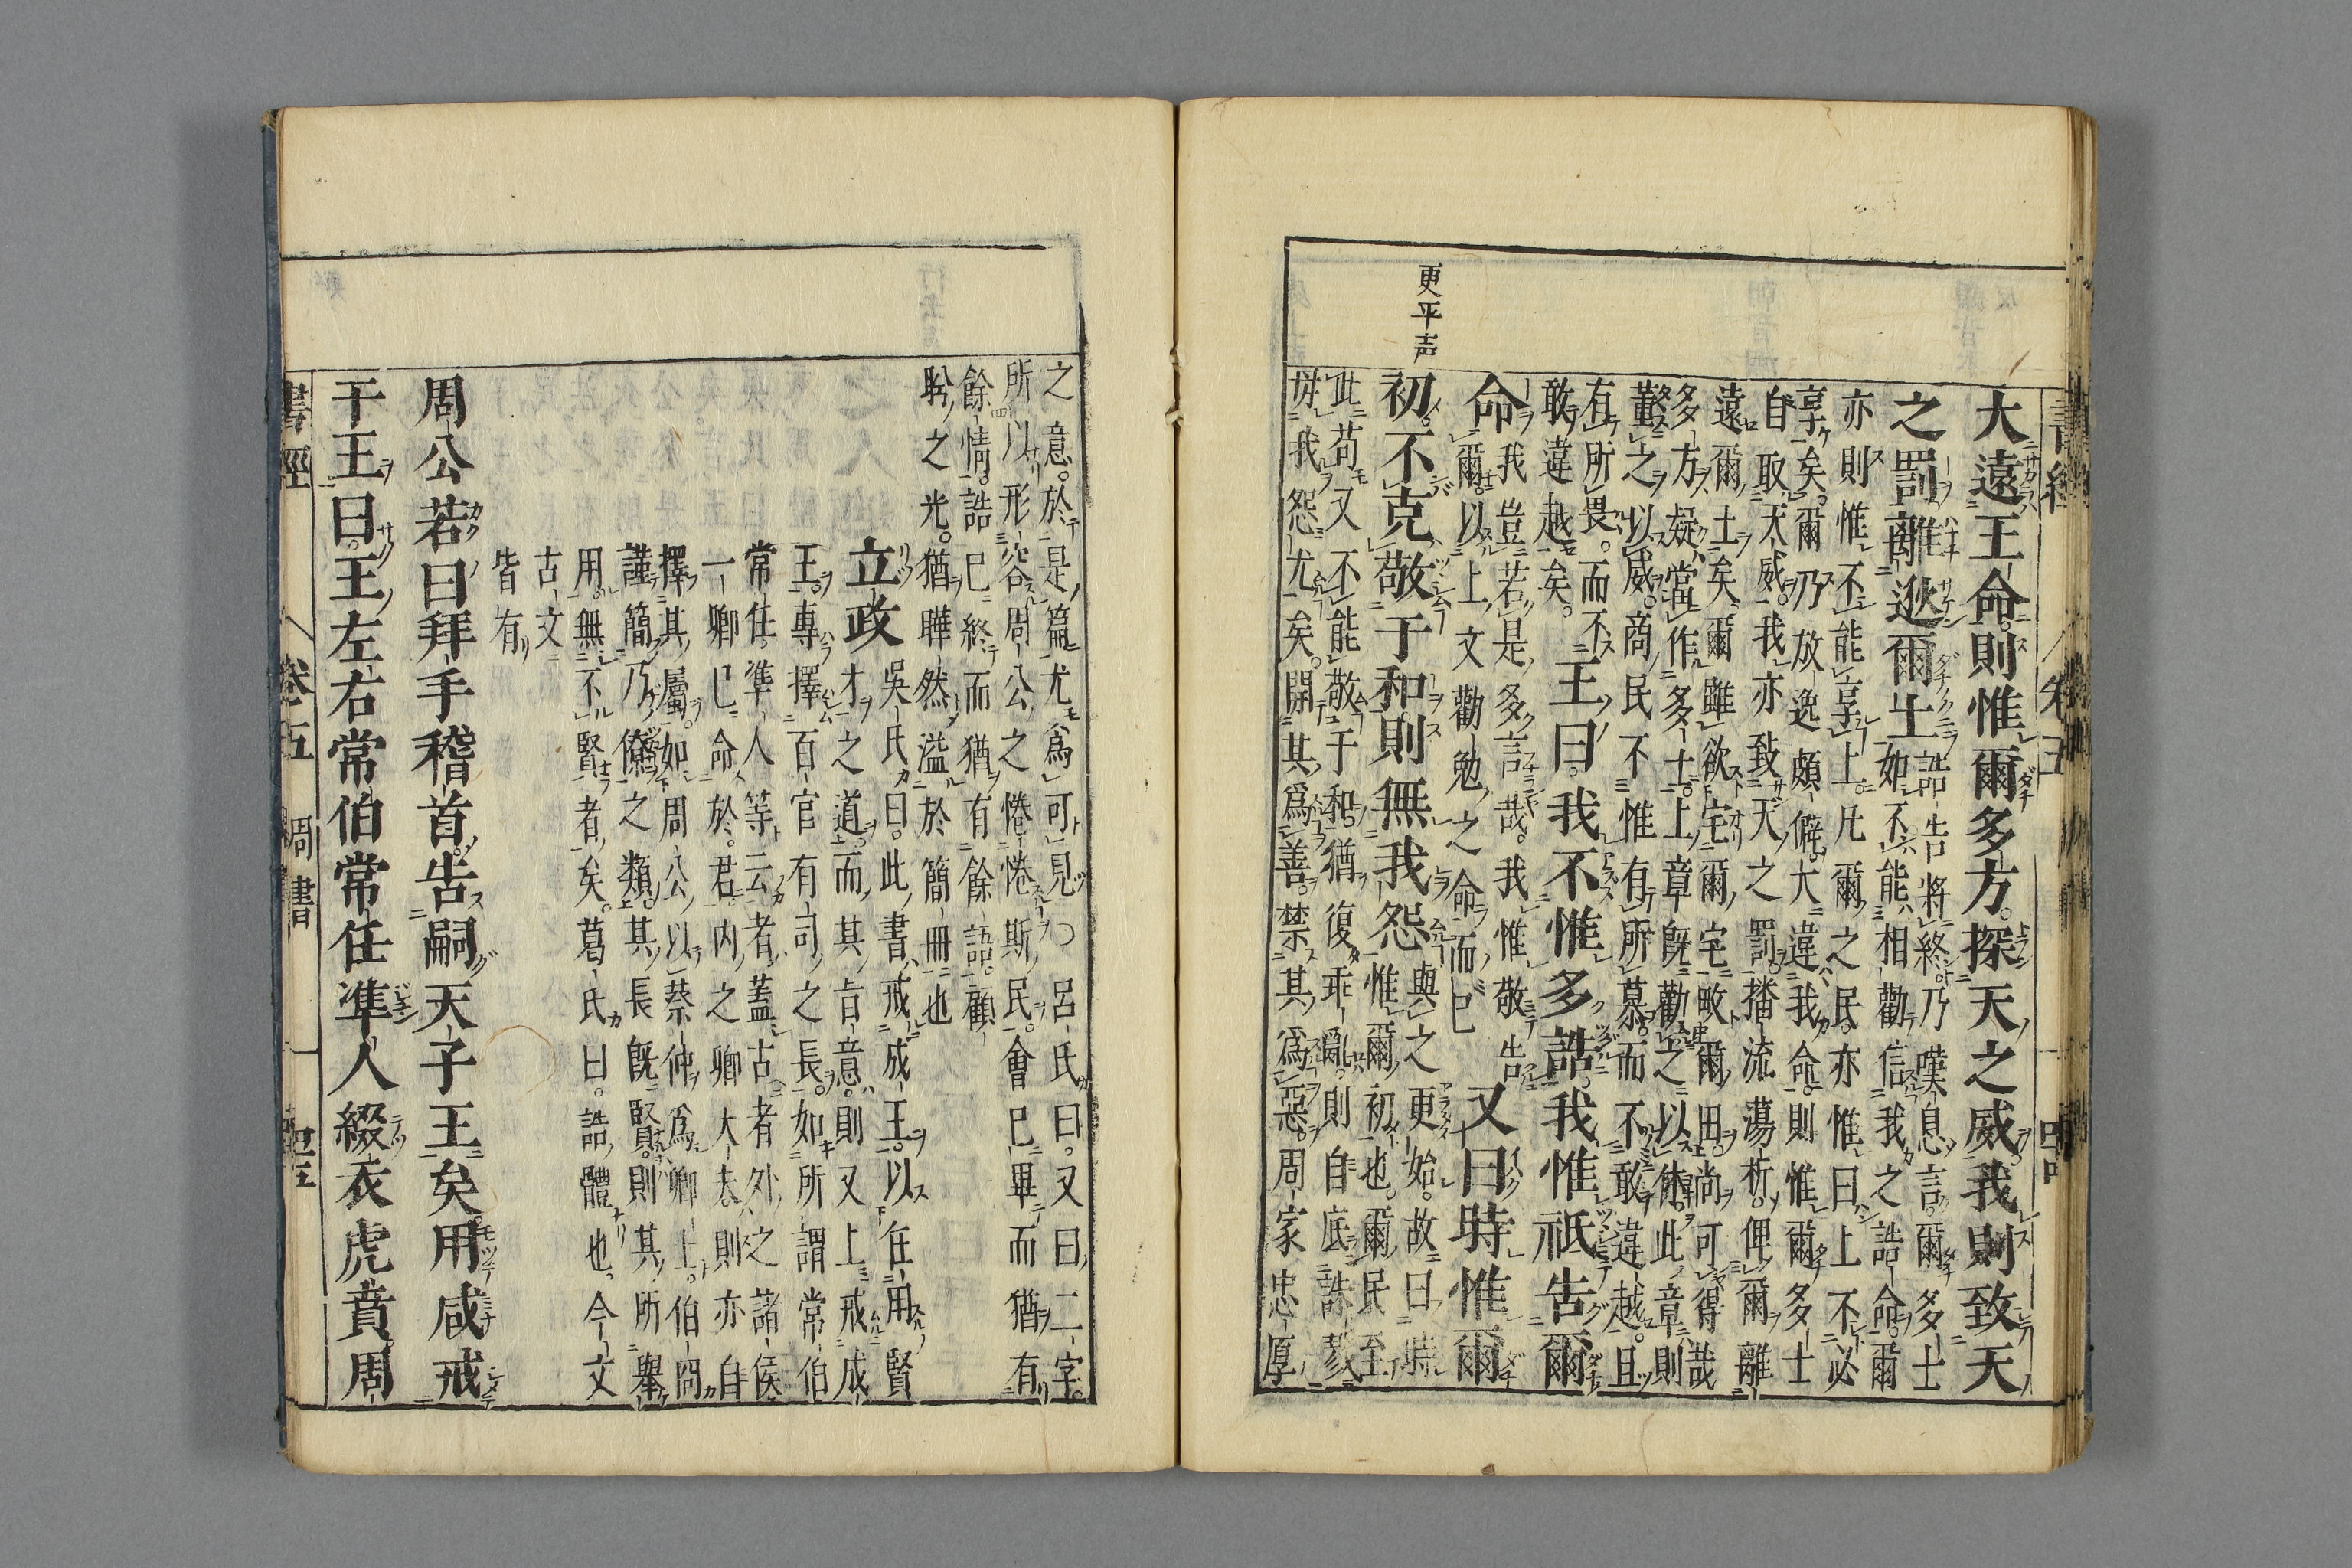 更平声
大遠王命則惟爾多方探天之威我則致天
之罰離逖爾土
誥告將終乃嘆息言爾多士
如不能相勸信我之誥命爾
亦則惟不能享上凡爾之民亦惟曰上不必
享矣爾乃放逸頗僻大違我命則惟爾多士
自取天威我亦致天之罰播流蕩析俾爾離
遠爾土矣爾雖欲宅爾宅畋爾田尚可得哉
多方疑當作多士上章既勸之以休此章則
董之以威商民不惟有所慕而不敢違越且
有所畏而不
敢違越矣
王曰我不惟多誥我惟祗告爾
命
我豈若是多言哉我惟敬告
爾以上文勸勉之命而已
又曰時惟爾
初不克敬于和則無我怨
與之更始故曰時
惟爾初也爾民至
此苟又不能敬于和猶復乖亂則自底誅戮
毋我怨尤矣開其為善禁其為惡周家忠厚
之意於是篇尤為可見○呂氏曰又曰二字
所以形容周公之惓惓斯民會已畢而猶有
餘情誥已終而猶有餘語顧
盻之光猶曄然溢於簡冊也
立政
吳氏曰此書戒成王以任用賢
才之道而其旨意則又上戒成
王專擇百官有司之長如所謂常伯
常任準人等云者蓋古者外之諸侯
一卿已命於君内之卿大夫則亦自
擇其屬如周公以蔡仲為卿士伯冏
謹簡乃僚之類其長既賢則其所舉
用無不賢者矣葛氏曰誥體也今文
古文
皆有
周公若曰拜手稽首告嗣天子王矣用咸戒
于王曰王左右常伯常任準人綴衣虎賁周
書經
卷五
周書